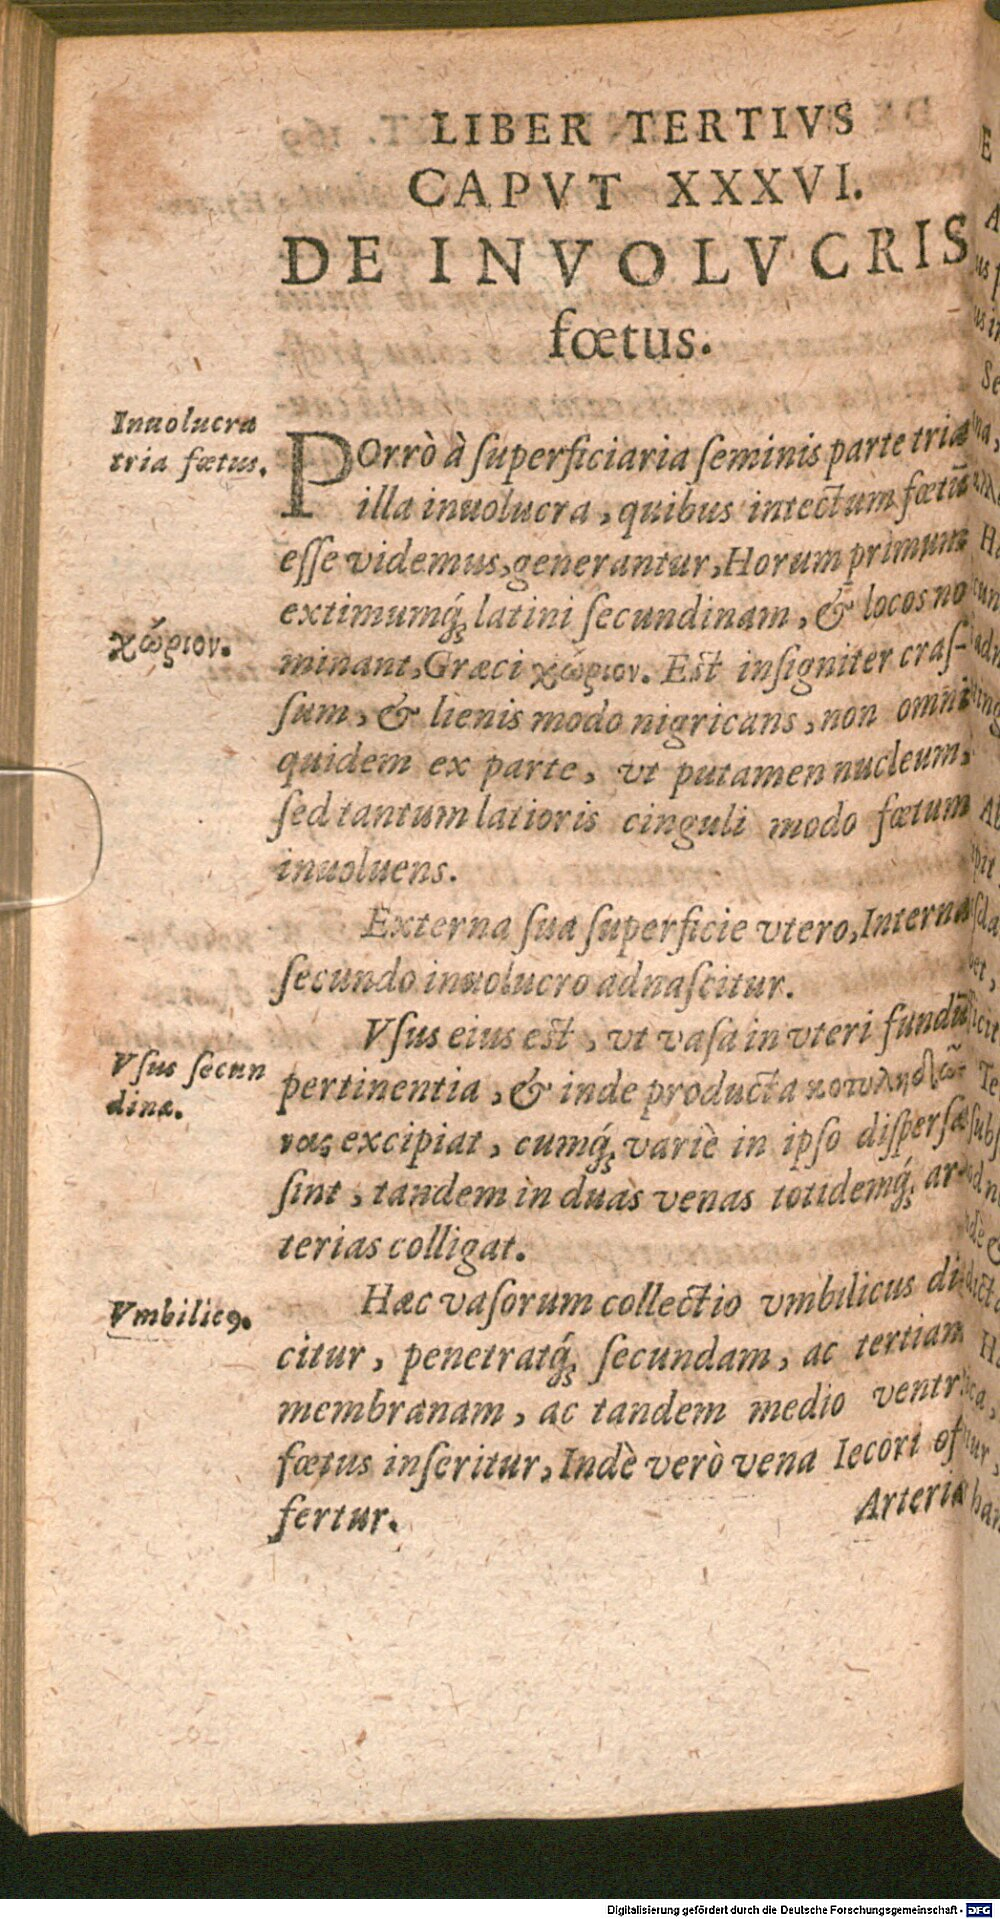 LIBER TERTIVS
CAPVT XXXVI.
DE INVOLVCRIS
fœtus.
Inuolucra
tria fœtus.
POrrò à ſuperficiaria ſeminis parte tria
illa inuolucra, quibus intectum fœtũ
eſſe videmus, generantur, Horum primum
extimumq́; latini ſecundinam, & locos no
χώριον.
minant, Græci χώριον. Est inſigniter craſ-
ſum, & lienis modo nigricans, non omni
quidem ex parte, vt putamen nucleum,
ſed tantum latioris cinguli modo fœtum
inuoluens.
Externa ſua ſuperficie vtero, Interna
ſecundo inuolucro adnaſcitur.
Vſus eius est, vt vaſa in vteri fundũ
Vſus ſecun
dinæ.
pertinentia, & inde producta κοτυληδῶ
νας excipiat, cumq́; variè in ipſo diſperſæ
ſint, tandem in duas venas totidemq́; ar
terias colligat.
Hæc vaſorum collectio vmbilicus di
Vmbilicꝰ.
citur, penetratq́; ſecundam, ac tertiam
membranam, ac tandem medio ventri
fœtus inſeritur, Indè verò vena Iecori of
fertur.
Arteriæ
Digitalisierung gefördert durch die Deutsche Forschungsgemeinschaft - DFG